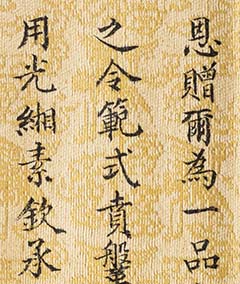 恩贈爾為一品
之令範式賁
用光緗素欽承